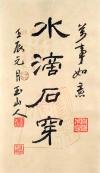 萬事如意
水滴石穿
壬辰元月玉山人